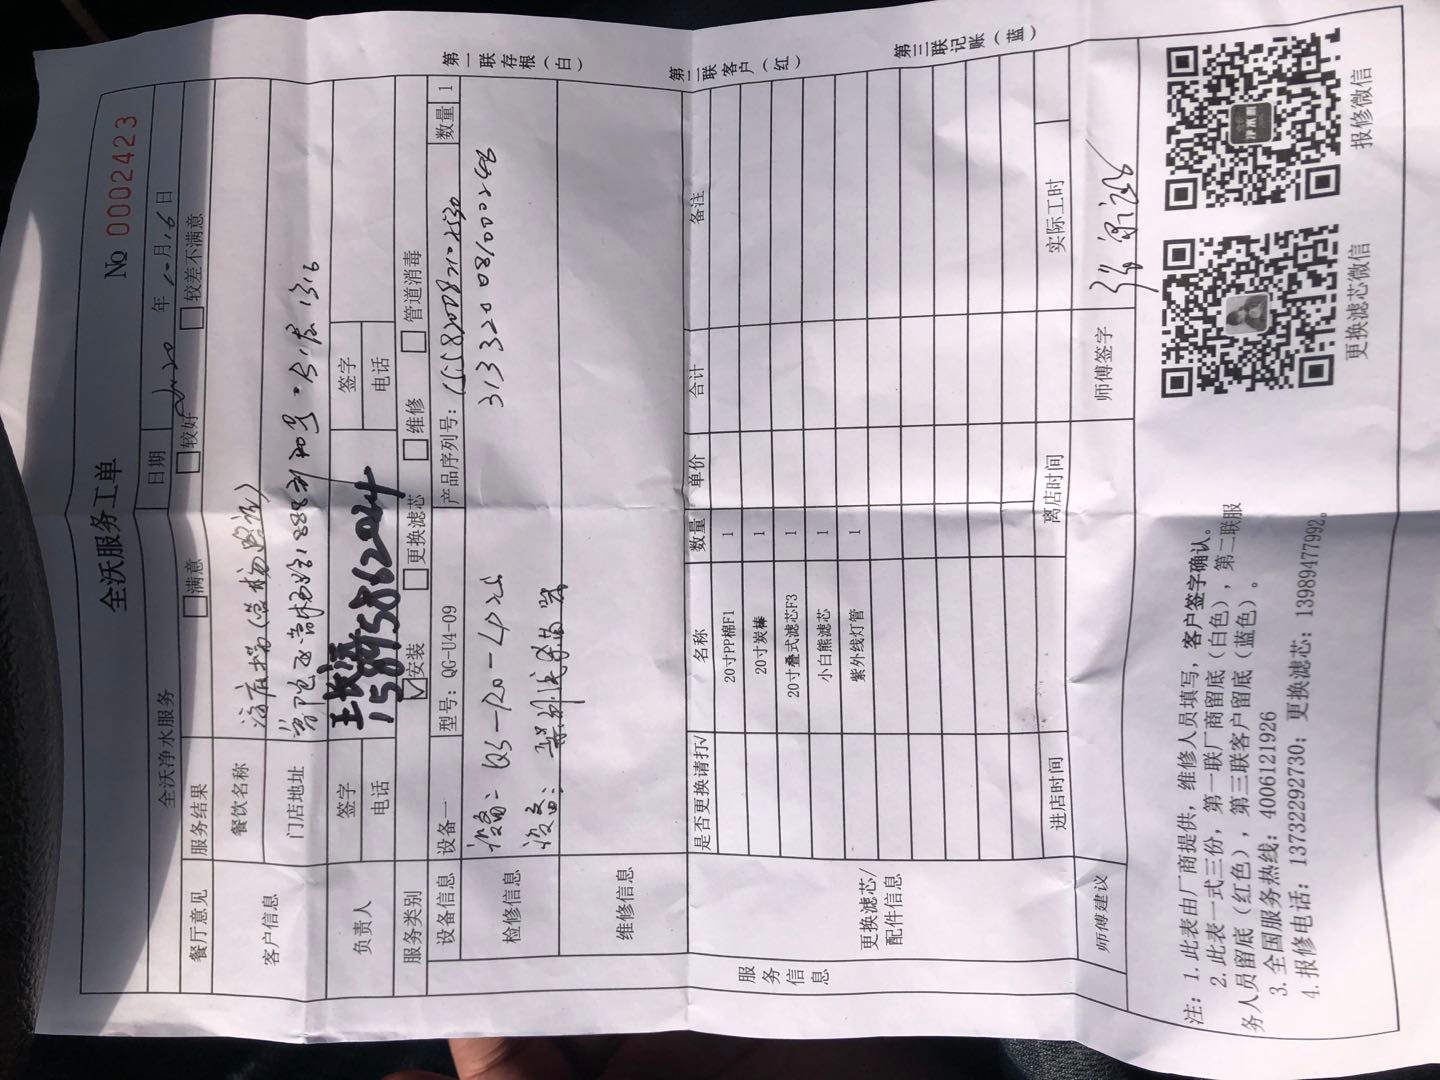 全沃服务工单
№ 0002423
全沃净水服务 日期 2020 年 10 月 16 日
餐厅意见 服务结果 满意 较好 较差不满意
客户信息 餐饮名称 海底捞
门店地址 1888 20号 1316
负责人 签字 签字
电话 15895862024 电话
服务类别 安装 更换滤芯 维修 管道消毒
设备信息 设备一 型号：QG-U4-09 产品序列号： 数量 1
检修信息 设备二
313320081000268
设备三
维修信息
服务信息
更换滤芯/配件信息 是否更换请打√ 名称 数量 单价 合计 备注
20寸PP棉F1 1
20寸炭棒 1
20寸叠式滤芯F3 1
小白熊滤芯 1
紫外线灯管 1
进店时间 离店时间 实际工时
师傅建议 师傅签字
第一联存根（白）
第二联客户（红）
第三联记账（蓝）
注：1. 此表由厂商提供，维修人员填写，客户签字确认。
2. 此表一式三份，第一联厂商留底（白色），第二联服
务人员留底（红色），第三联客户留底（蓝色）。
3. 全国服务热线：4006121926
4. 报修电话：13732292730；更换滤芯：13989477992。
更换滤芯微信
报修微信